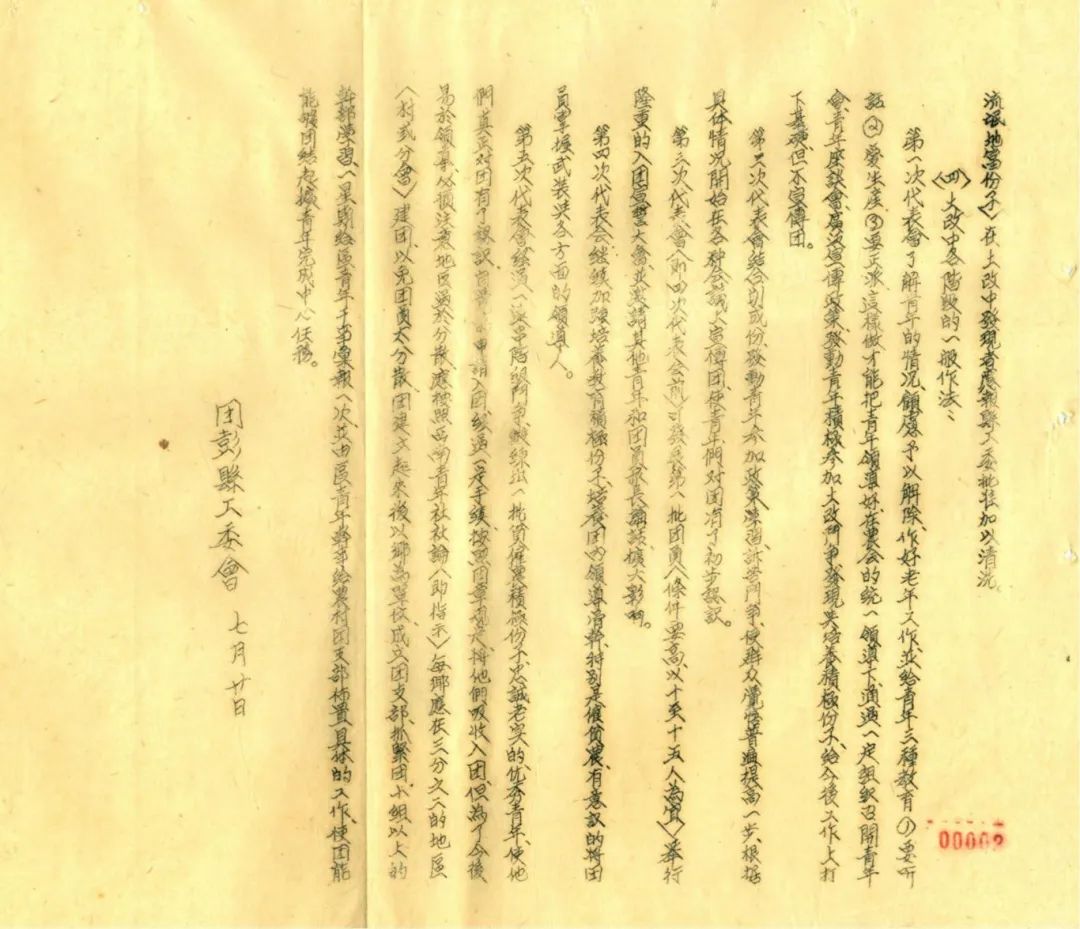 流氓地富份子〉在土改中發現者應報縣工委批准加以清洗。
〈四〉土改中各階段的一般作法：
第一次代表會了解青年的情況、顧慮予以解除、作好老年工作、並給青年三種教育①要听
話②愛生產③要正派、這樣做才能把青年領導好、在農会的統一領導下、通過一定組織召開青年
會、青年座談會、廣泛宣傳政策、發動青年積極参加土改鬥爭、發現與培養積極份子、給今後工作上打
下基礎、但不宣傳团。
第二次代表會結合划成份、發動青年参加政策、訴苦鬥爭、使群众覺悟普遍提高一步、根据
具体情况開始在各种会議上宣傳团、使青年們对团有了初步認識。
第三次代表會〈即四次代表会前〉可發展第一批团員〈條件要高、以十至十五人為宜〉举行
隆重的入团宣誓大會、並邀請其他青年和团員家長講談、擴大影响。
第四次代表会継續加强培養教育積極份子、培養团內領導骨幹、特別是僱貧農、有意識的將团
員掌握武装與各方面的領導人。
第五次代表會經過一連串階級鬥爭、鍛煉出一批貧僱農積極份子、忠誠老实的优秀青年、使他
們真正对团有了認識、自覺申請入团、経過一定手續、按照团章規定、將他們吸收入团、但為了今後
易於領導、必須注意地區過於分散、應按照西南青年社社論〈即指示〉每鄉應在三分之一的地區
〈村或分會〉建团、以免团員太分散、团建立起來後以鄉為單位成立团支部、抓緊团小組以上的
幹部學習、一星期給區青年干事彙報一次、並由區青年幹事給農村团支部佈置具体的工作、使团能
能够团結起廣青年完成中心任務。
团彭縣工委會 七月廿日
00002